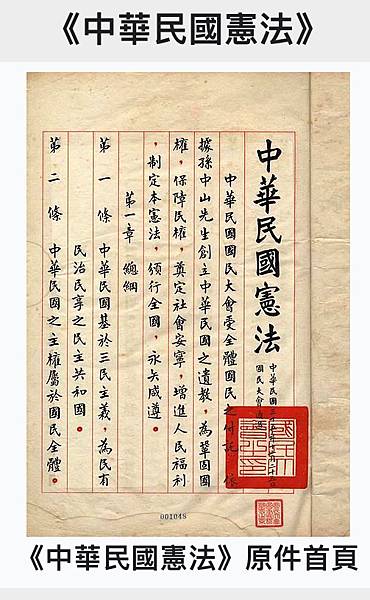 《中華民國憲法》
中華民國憲法
中華民國三十五年十二月二十五日
國民大會通過
中華民國國民大會受全體國民之付託,依
據孫中山先生創立中華民國之遺教,為鞏固國
權,保障民權,奠定社會安寧,增進人民福利
,制定本憲法,頒行全國,永矢咸遵。
第一章 總綱
第一條 中華民國基於三民主義,為民有
民治民享之民主共和國。
第二條 中華民國之主權屬於國民全體。
001048
《中華民國憲法》原件首頁